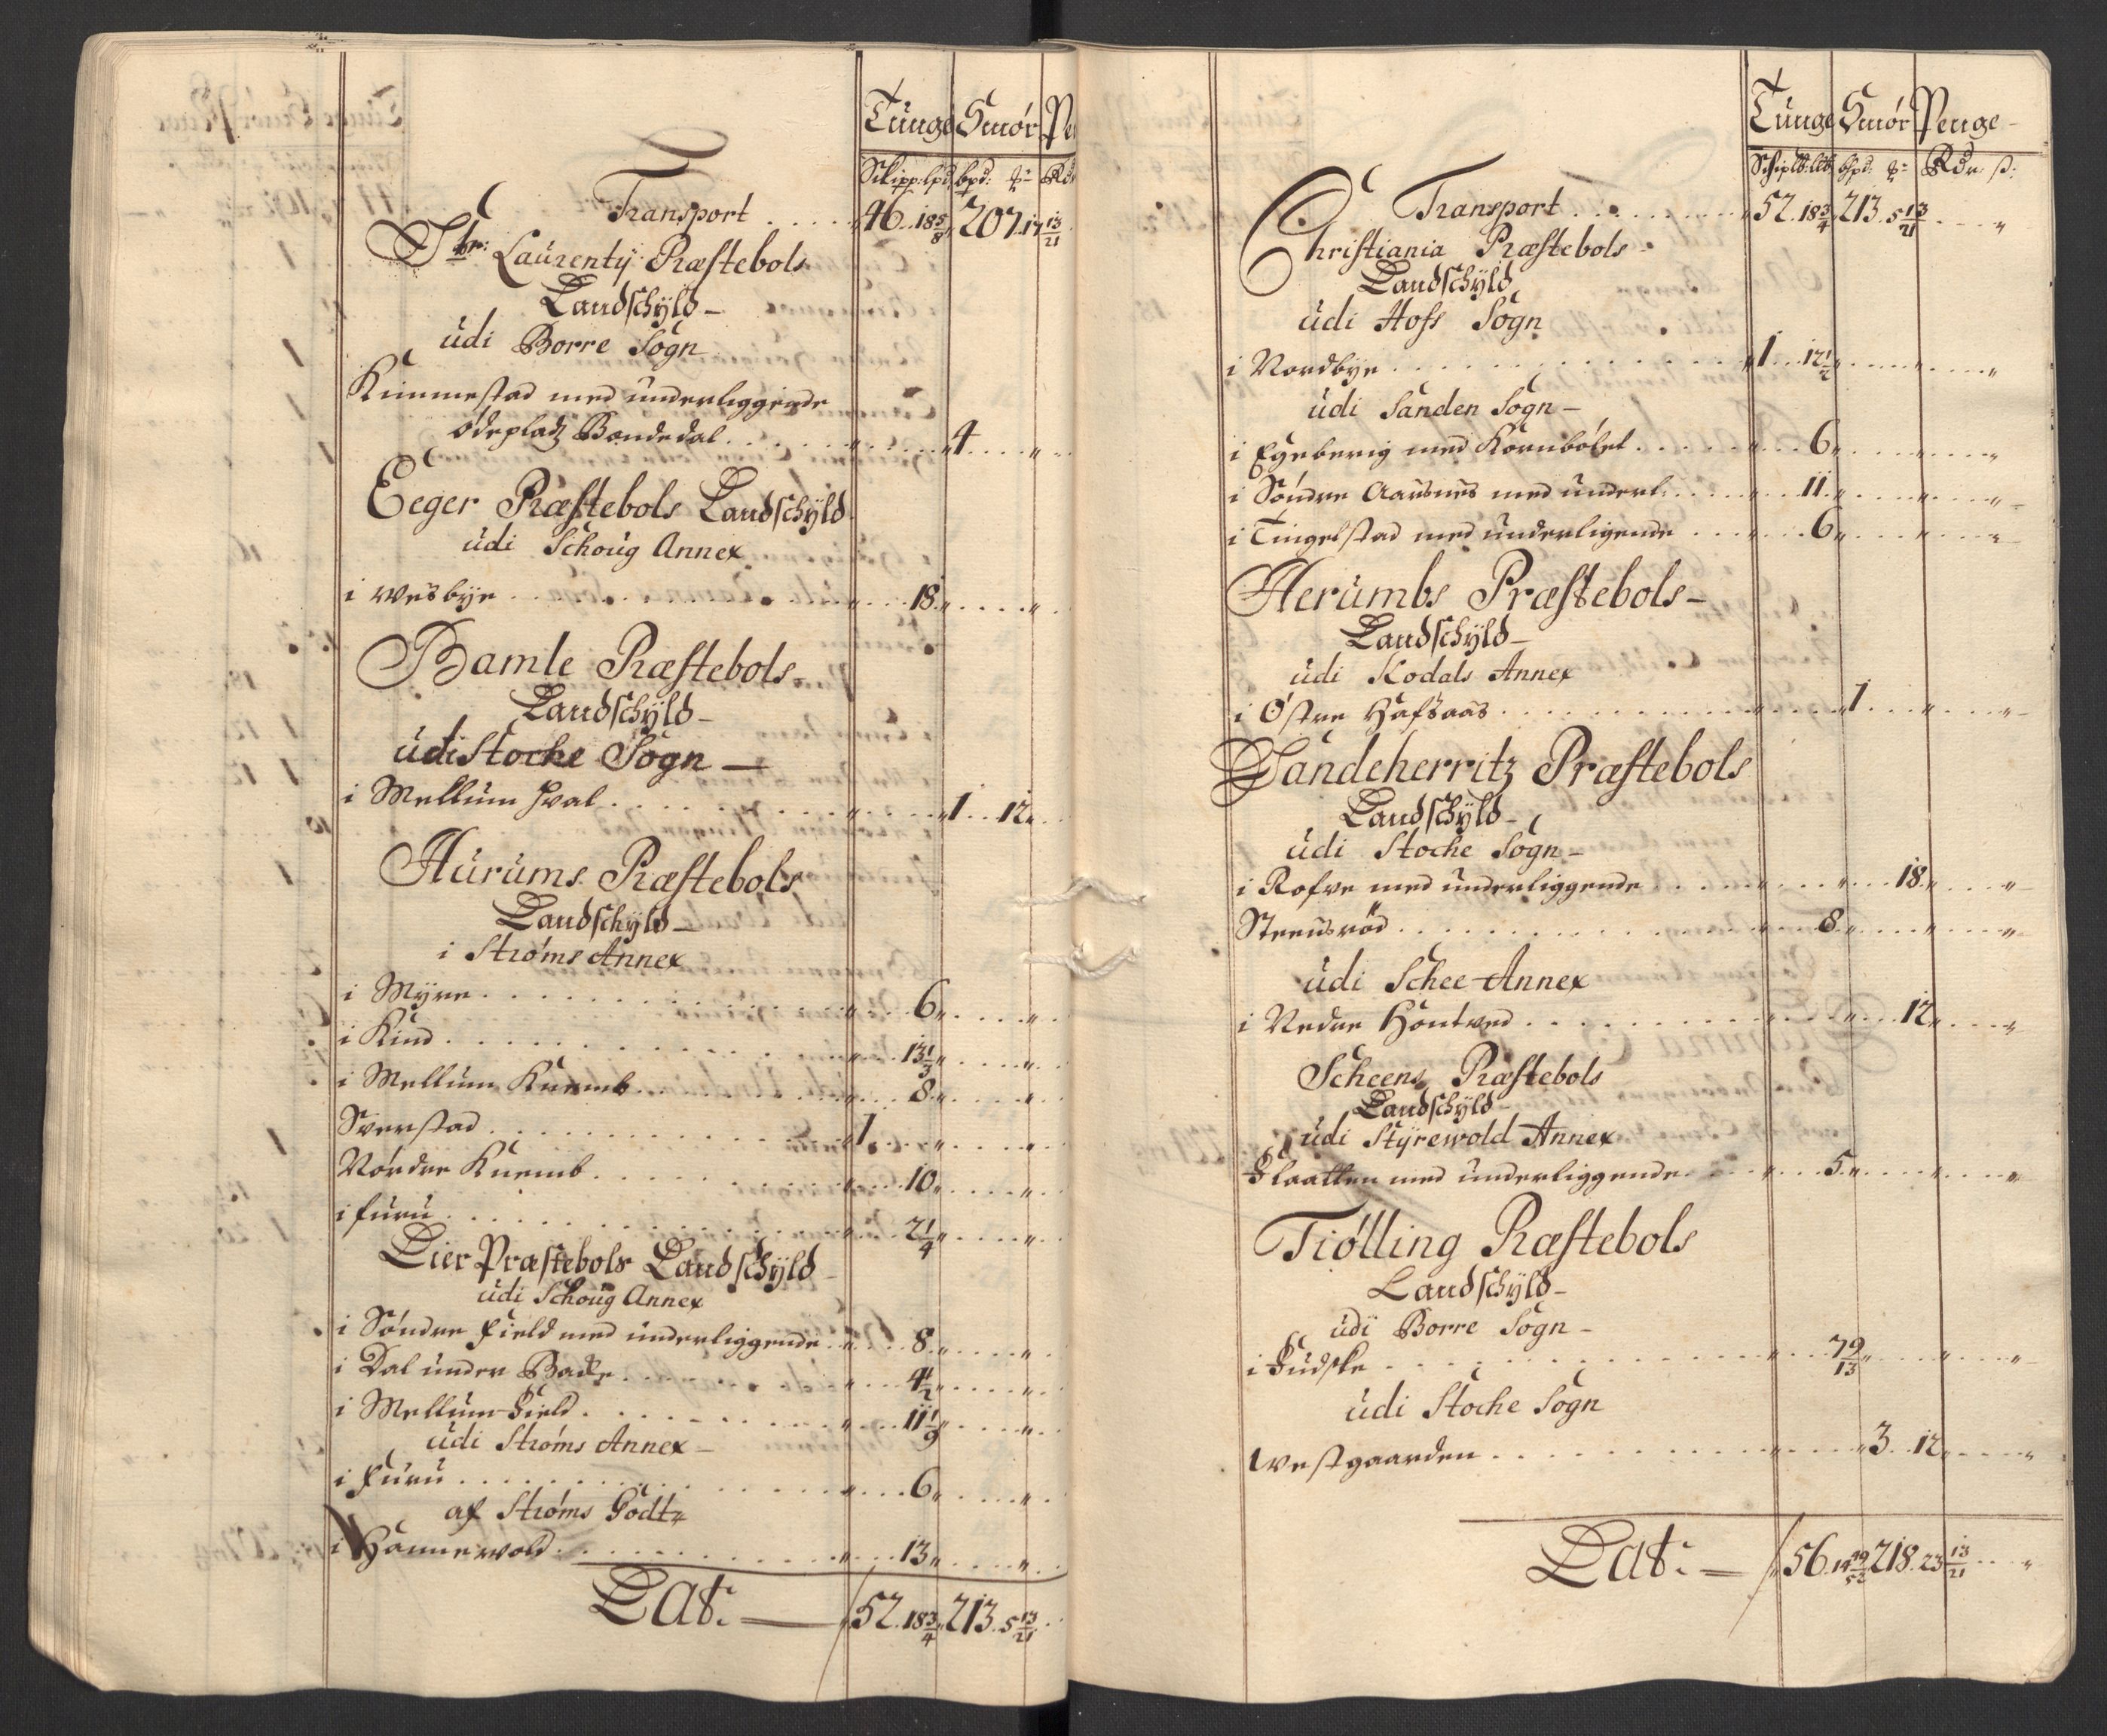 Tunge Smør Pe
Skipp: lpd: bpd: Rd
Transport . . . . . 46. 18 5/8 207. 17 13/21
Str: Laurentij Præstebols
Landschÿld –
udi Borre Sogn
Kimmestad med underliggende
ödeplads Bondedal . . . . . 4 . . . "
Eeger Præstebols Landschÿld
udi Schoug Annex
i Wesbÿe . . . . . 18 " . . . "
Bamle Præstebols –
Landschÿld –
udi Stoche Sogn —
i Mellum Hval . . . . . 1 . . 12 "
Hurums Præstebols
Landschÿld –
i Strøms Annex
i Mÿre . . . . . 6 " . . . "
i Kind . . . . . 13 1/3 " . . . "
i Mellum Knemb . . . . . 8 " . . . "
Sverstad . . . . . 1 . . . "
Nordre Knemb . . . . . 10 " . . . "
i furu . . . . . 2 1/4 " . . . "
Lier Præstebols Landschÿld –
udi Schoug Annex
i Søndre Field med underliggende . . . 8 " . . . "
i Dal under Backe . . . . . 4 1/2 " . . . "
i Mellum Field . . . . . 11 1/9 " . . . "
udi Strøms Annex –
i Furu . . . . . 6 " . . . "
af Strøms Godtz
i Hannewold . . . . . 13 " . . . "
Lat: — 52. 18 3/4 213. 5 13/21
Tunge Smør Penge –
Schipld: bpd: Rdr ß:
Transport . . . . . 52. 18 3/4 213. 5 13/21 . . . "
Christiania Præstebols –
Landschÿld
udi Hofs Sogn
i Nordbÿe . . . . . 1 . . 12 1/2 " . . . " . . . "
udi Sanden Sogn –
i Egeberig med Kornbølet . . . . . 6 " . . . " . . . "
i Søndre Aarsnes med underl: . . . . . 11 " . . . " . . . "
i Tingelstad med underligende . . . 6 " . . . " . . . "
Herumbs Præstebols –
Landschÿld –
udi Kodals Annex
i Østre Hafsaas . . . . . 1 . . . " . . . "
Sandeherritz Præstebols
Landschÿld –
udi Stoche Sogn –
i Rofve med underliggende . . . . . 18 " . . . "
Steensröd . . . . . 8 " . . . " . . . "
udi Schee Annex
i Nedre Hontved . . . . . 12 " . . . "
Scheens Præstebols
Landschÿld –
udi Stÿrewold Annex
Slaatten med underliggende . . . 5 " . . . " . . . "
Tiølling Præstebols
Landschÿld –
udi Borre Sogn –
i Gudske . . . . . 7 9/13 " . . . " . . . "
udi Stoche Sogn
Westgaarden . . . . . 3 . . 12 " . . . "
Lat: — 56. 14 49/52 218. 23 13/21 . . . "